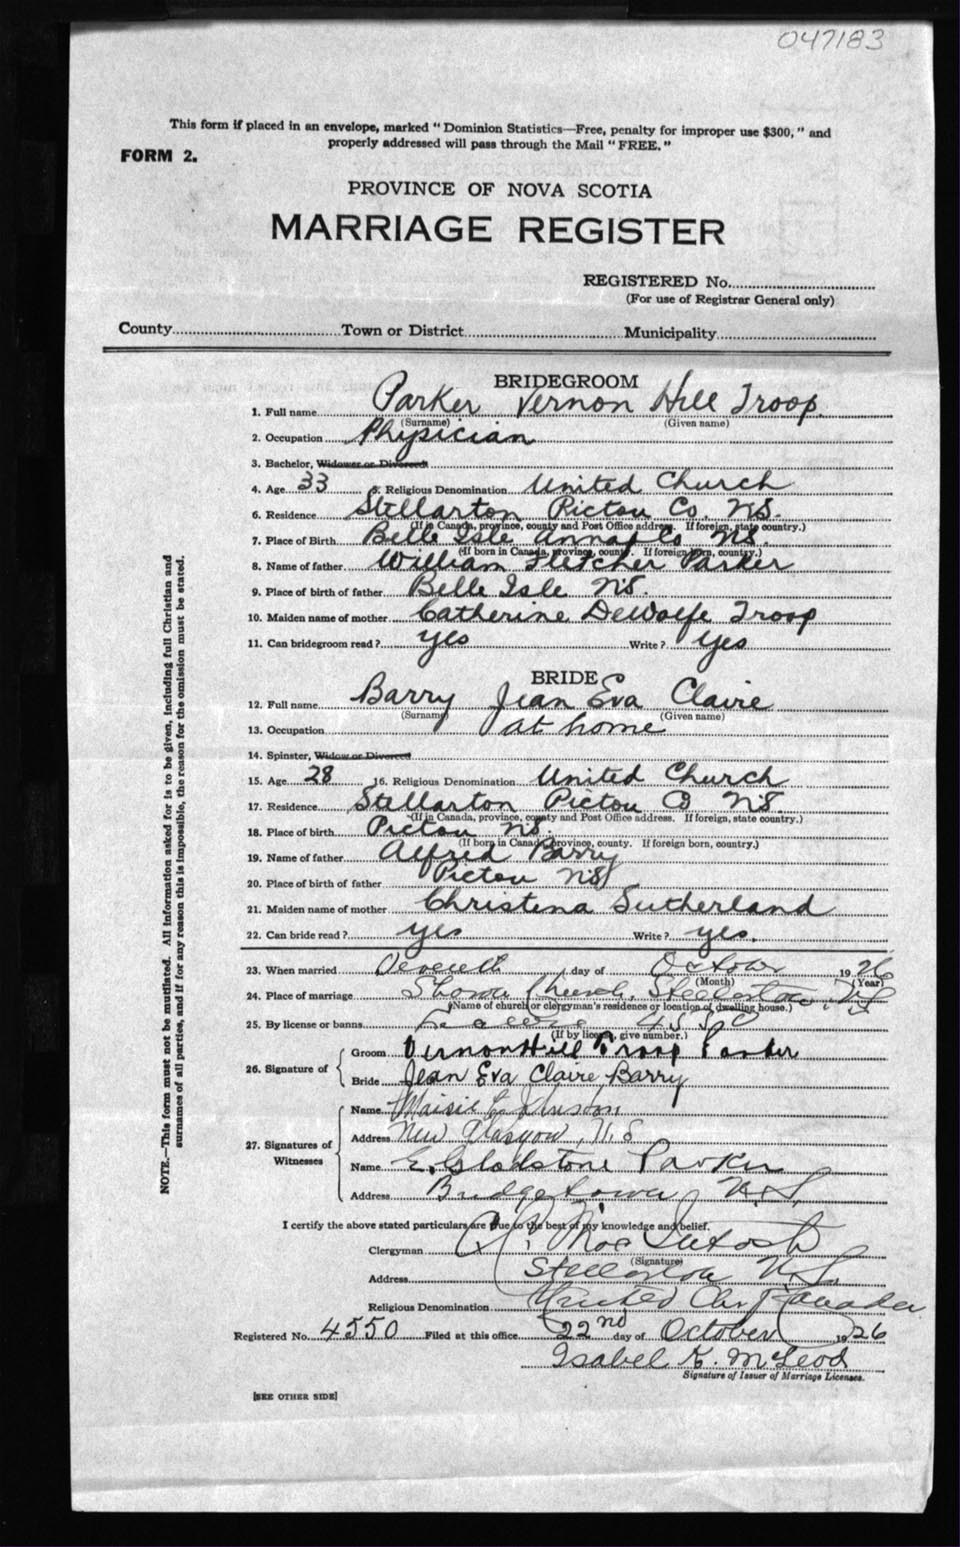 047183
This form if placed in an envelope, marked "Dominion Statistics—Free, penalty for improper use $300," and
properly addressed will pass through the Mail "FREE."
FORM 2.
PROVINCE OF NOVA SCOTIA
MARRIAGE REGISTER
REGISTERED No.
(For use of Registrar General only)
County Town or District Municipality
BRIDEGROOM
1. Full name Parker Vernon Hill Troop
(Surname) (Given name)
2. Occupation Physician
3. Bachelor, Widower or Divorced
4. Age 33 5. Religious Denomination United Church
6. Residence Stellarton Pictou Co. N.S.
(If in Canada, province, county and Post Office address. If foreign, state country.)
7. Place of Birth Belle Isle Annap Co N.S.
(If born in Canada, province, county. If foreign born, country.)
8. Name of father William Fletcher Parker
9. Place of birth of father Belle Isle N.S.
10. Maiden name of mother Catherine DeWolfe Troop
11. Can bridegroom read? yes Write? yes
BRIDE
12. Full name Barry Jean Eva Claire
(Surname) (Given name)
13. Occupation at home
14. Spinster, Widow or Divorced
15. Age 28 16. Religious Denomination United Church
17. Residence Stellarton Pictou Co N.S.
(If in Canada, province, county and Post Office address. If foreign, state country.)
18. Place of birth Pictou N.S.
(If born in Canada, province, county. If foreign born, country.)
19. Name of father Alfred Barry
20. Place of birth of father Pictou N.S.
21. Maiden name of mother Christena Sutherland
22. Can bride read? yes Write? yes.
23. When married day of October 1926
(Month) (Year)
24. Place of marriage Sharon Church, Stellarton, N.S.
(Name of church or clergyman's residence or location of dwelling house.)
25. By license or banns 4550
(If by license, give number.)
26. Signature of
Groom Vernon Hill Troop Parker
Bride Jean Eva Claire Barry
27. Signatures of Witnesses
Name Maisie Johnston
Address New Glasgow, N.S
Name E. Gladstone Parker
Address Bridgetown, N.S.
I certify the above stated particulars are true to the best of my knowledge and belief.
Clergyman C. C. MacIntosh
(Signature)
Address Stellarton N.S.
Religious Denomination United Ch. of Canada
Registered No. 4550 Filed at this office 22nd day of October 1926
Isabel K. McLeod
Signature of Issuer of Marriage Licenses.
[SEE OTHER SIDE]
NOTE.—This form must not be mutilated. All information asked for is to be given, including full Christian and
surnames of all parties, and if for any reason this is impossible, the reason for the omission must be stated.